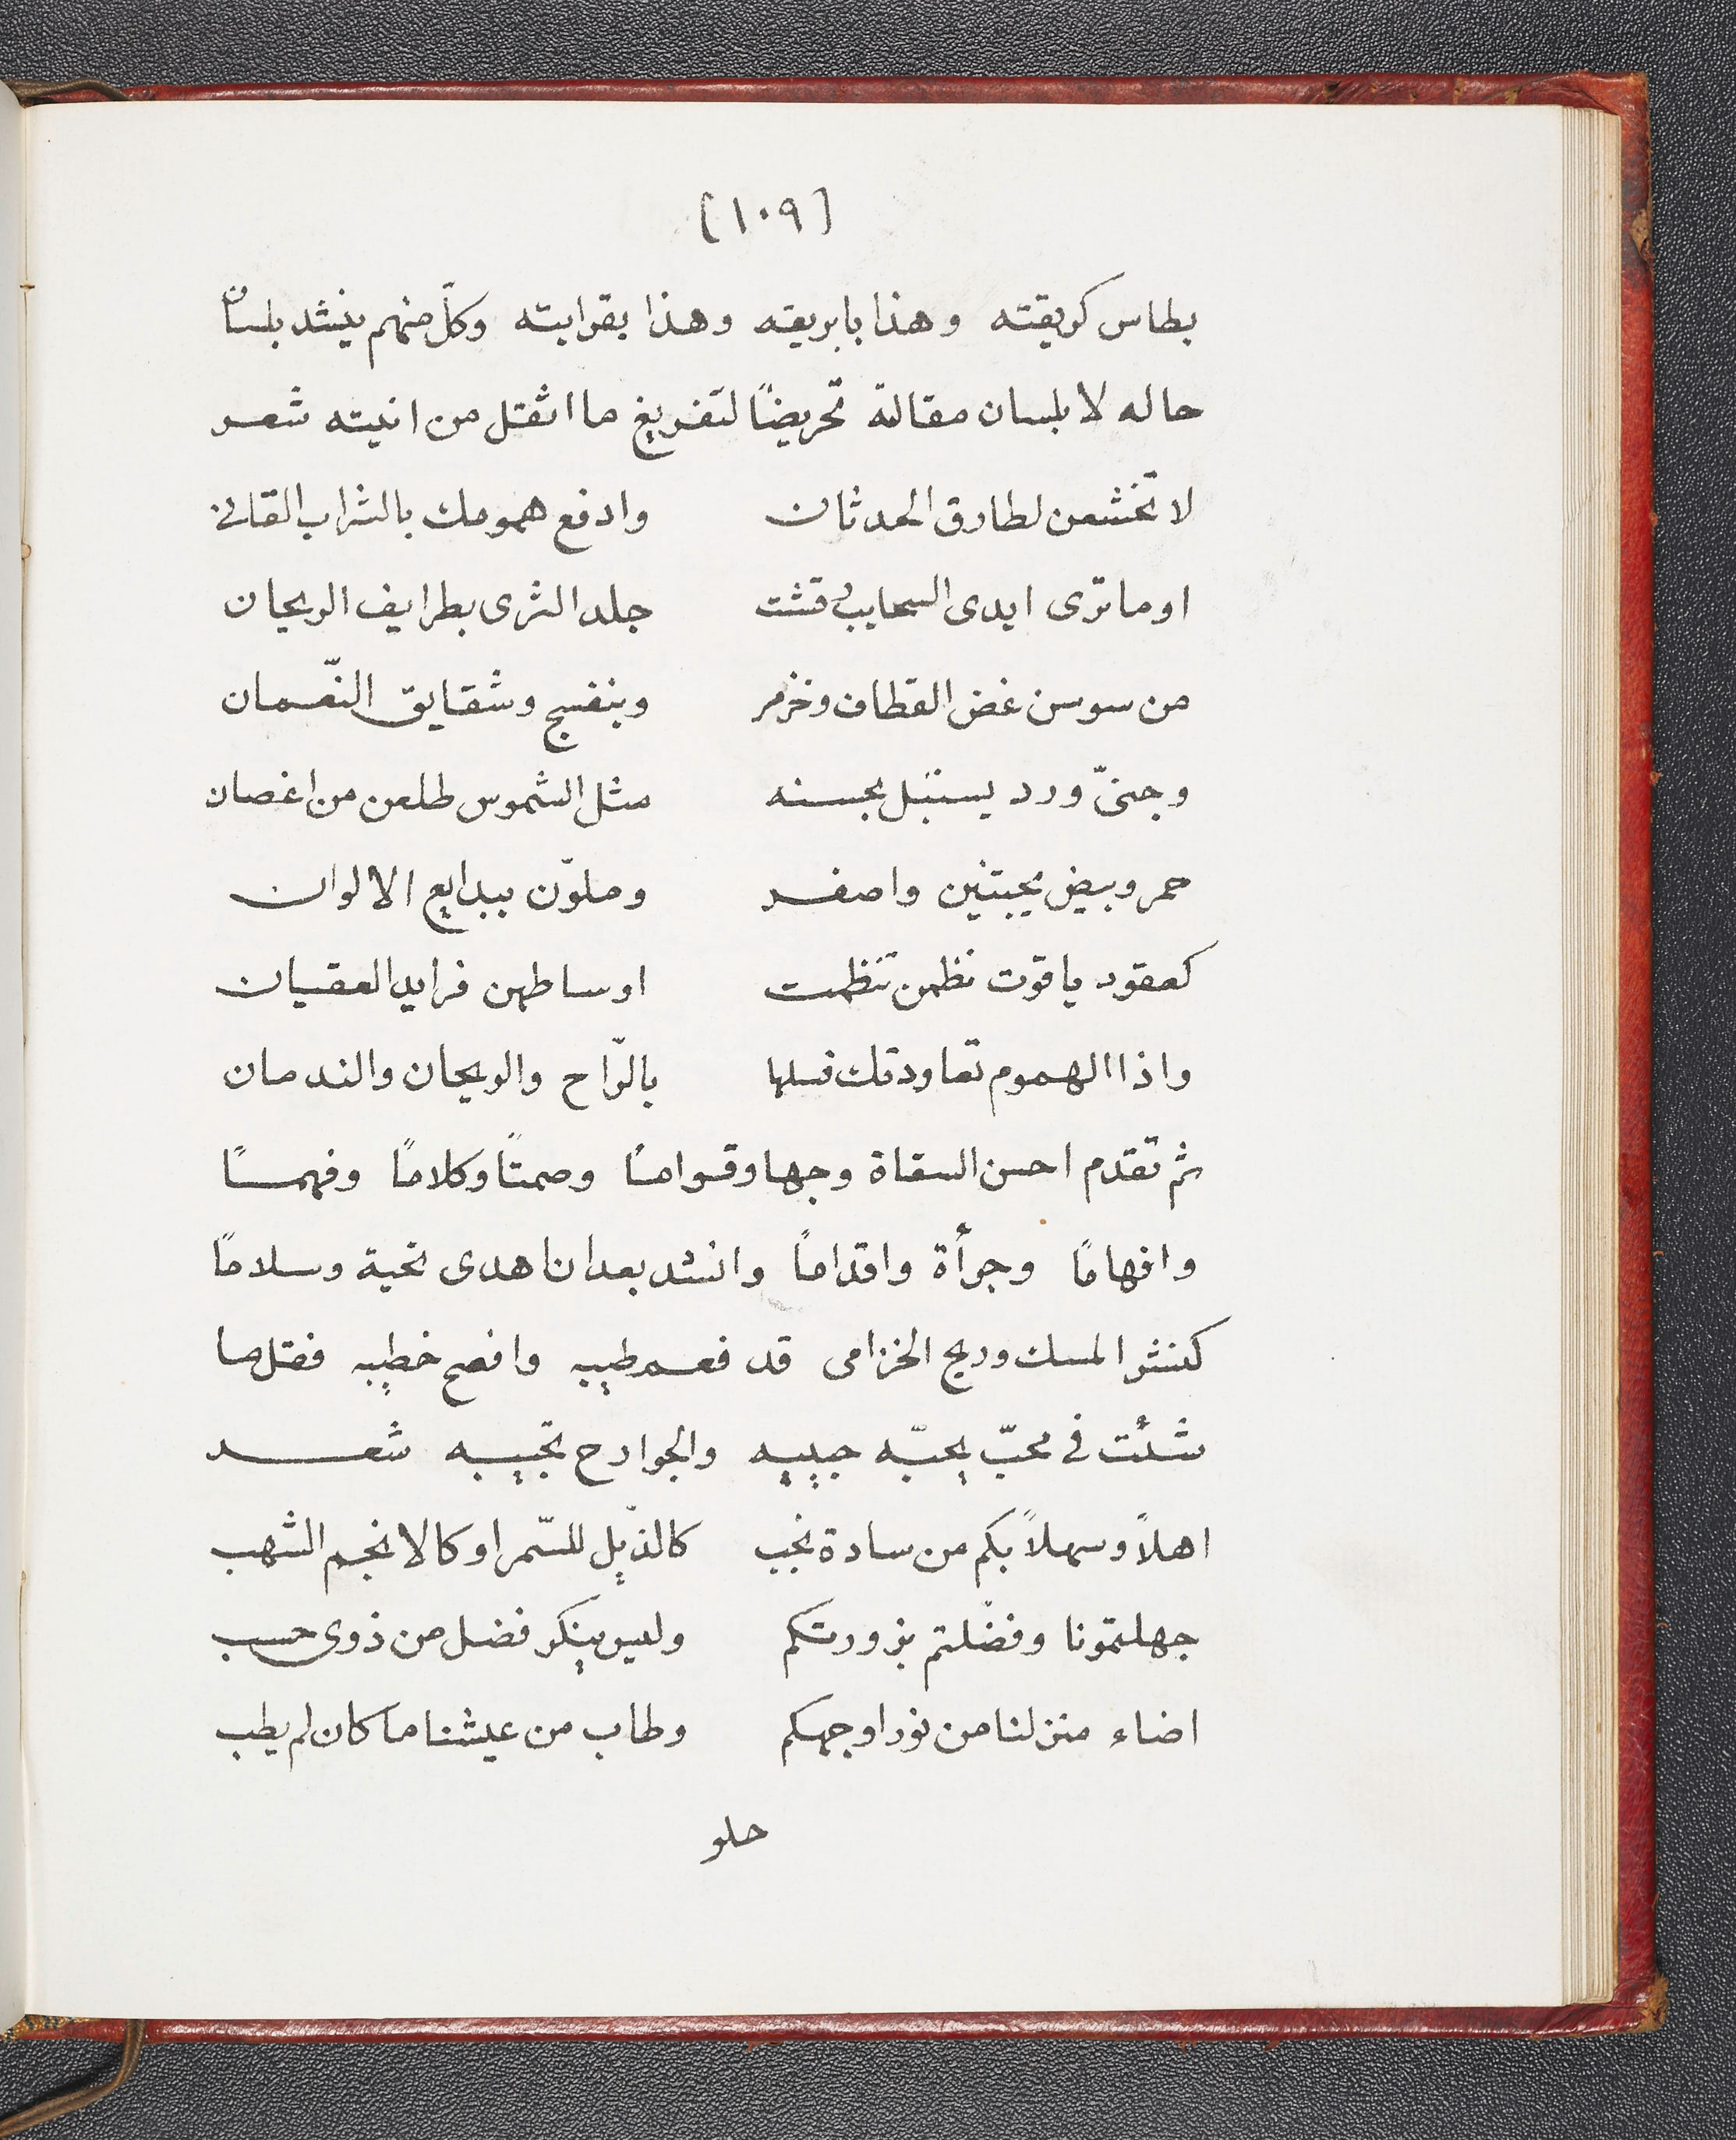 [١٠٩]
بطاس كريقته وهذا بابريقه وهذا بقرابته وكلّ منهم ينشد بلسان
حاله لا بلسان مقالة تحريضًا لتفريغ ما اثقل من انيته شعر
لا تخشعن لطارق الحدثان وادفع همومك بالشراب القانى
اوما ترى ايدى السحايب رقشت جلد الثرى بطرايف الريحان
من سوسن غض القطاف وخزمر وبنفسج وشقايق النّعمان
وجنىّ ورد يستبل بحسنه مثل الشموس طلعن من اغصان
حمر وبيض يجبتين واصفر وملوّن ببدايع الالوان
كعقود ياقوت نظمن تنظمت اوساطهن فرايد العقيان
واذا الهموم تعاودتك فسلها بالرّاح والريحان والندمان
ثم تقدم احسن السقاة وجها وقوامًا وصمتًا وكلامًا وفهمًا
وافهامًا وجرأة واقدامًا وانشد بعد ان اهدى تحية وسلامًا
كنشر المسك وريح الخزامى قد فعم طيبه وافصح خطيبه فقل ما
شئت فى محبّ يحبّه حبيبه والجوارح تجيبه شعر
اهلاً وسهلاً بكم من سادة نجب كالذّبل للسّمر او كالانجم الشهب
جهلتمونا وفضّلتم بزورتكم وليس ينكر فضل من ذوى حسب
اضاء منزلنا من نور اوجهكم وطاب من عيشنا ما كان لم يطب
حلو